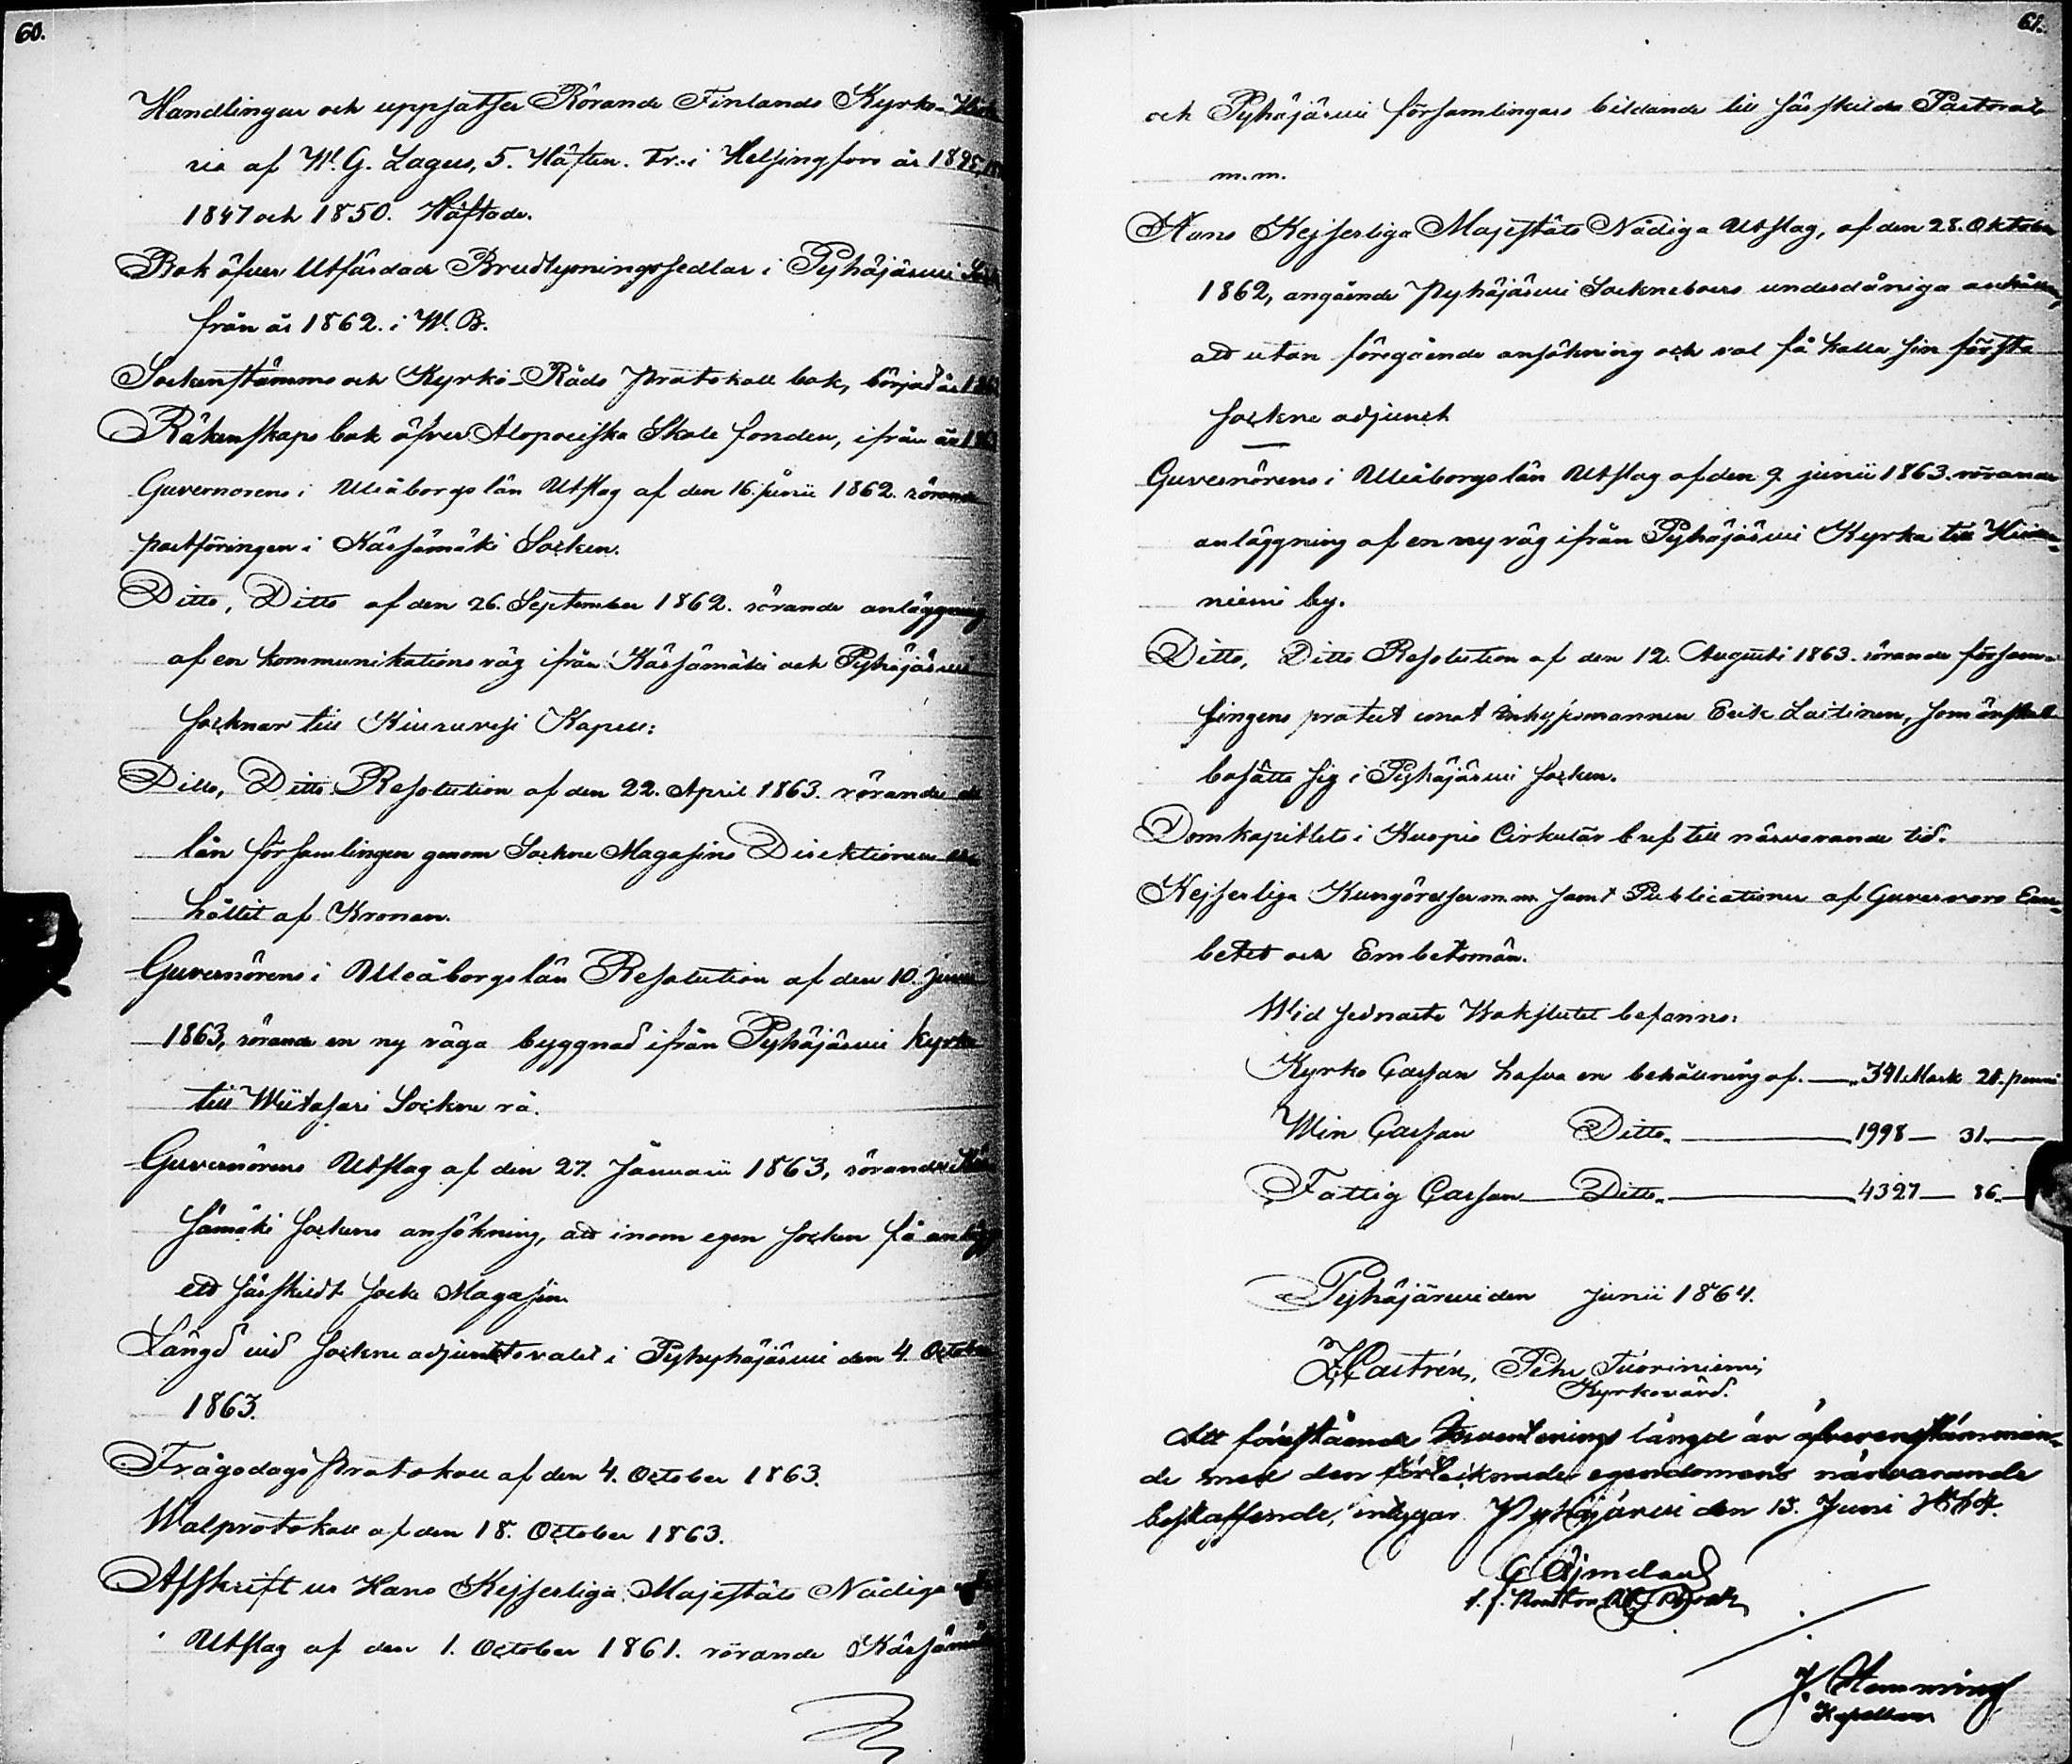 60.
Handlingar och uppsatser Rörande Finlands Kyrko-
ria af W. G. Lagus, 5. Häften. Tr. i Helsingfors år
1847 och 1850. Häftade.
Bok öfver Utfärdade Brudlysningssedlar i Pyhäjärwi
från år 1862. i W. B.
Sockenstämmo och Kyrko-Råds Protokoll bok, börjad år
Räkenskaps bok öfver Alopoeiska Skole fonden, ifrån år
Guvernörens i Uleåborgs län Utslag af den 16. Junii 1862. rörande
postföringen i Kärsämäki Socken.
Ditto, Ditto af den 26. September 1862. rörande anläggning
af en kommunikations väg ifrån Kärsämäki och Pyhäjärwi
socknar till Kiuruvesi Kapell:
Ditto, Ditto Resolution af den 22. April 1863. rörande
lån församlingen genom Sockne Magasins Direktionen
hållit af Kronan.
Guvernörens i Uleåborgs län Resolution af den 10. Junii
1863, rörande en ny väga byggnad ifrån Pyhäjärwi kyrka
till Wiitasari Sockne rå.
Guvernörens Utslag af den 27. Januarii 1863, rörande Kär-
sämäki sockens ansökning, att inom egen socken få anlägga
ett särskildt socke Magasin.
Längd vid sockne adjunktsvalet i Pyhyhäjärwi den 4. October
1863.
Frågodags Protokoll af den 4. October 1863.
Walprotokoll af den 18. October 1863.
Afskrift ur Hans Kejserliga Majestäts Nådiga
Utslag af den 1. October 1861. rörande Kärsämäki
61.
och Pyhäjärwi församlingars bildande till särskilda Pastorat
m.m.
Hans Kejserliga Majestäts Nådiga Utslag, af den 28. Oktober
1862, angående Pyhäjärwi Socknebors underdåniga anhållan,
att utan föregående ansökning och val få kalla sin första
sockne adjunct
Guvernörens i Uleåborgs län Utslag af den 9. junii 1863. rörande
anläggning af en ny väg ifrån Pyhäjärwi Kyrka till
niemi by.
Ditto, Ditto Resolution af den 12. Augusti 1863. rörande försam-
lingens protest emot Inhysesmannen Erik Laitinen, som önskat
bosätta sig i Pyhäjärwi socken.
Domkapitlets i Kuopio Cirkulär bref till närvarande tid.
Kejserliga Kungörelser m.m. samt Publicationer af Guvernörs Em-
betet och Embetsmän.
Wid sednaste Bokslutet befanns:
Kyrko Cassan hafva en behållning af. — 341 Mark 28. penni
Win Cassan Ditto. — 1998 — 31. —
Fattig Cassan Ditto. — 4327 — 86. —
Pyhäjärwi den Junii 1864.
Z Castrén, Pehr Tuoriniemi,
Kyrkovärd.
Att föreståendе Inventerings längd är öfverensstämman-
de med den förtecknade egendomens närvarande
beskaffende, intygar Pyhäjärwi den 13. Juni 1864.
J. Hemming
Kapellan